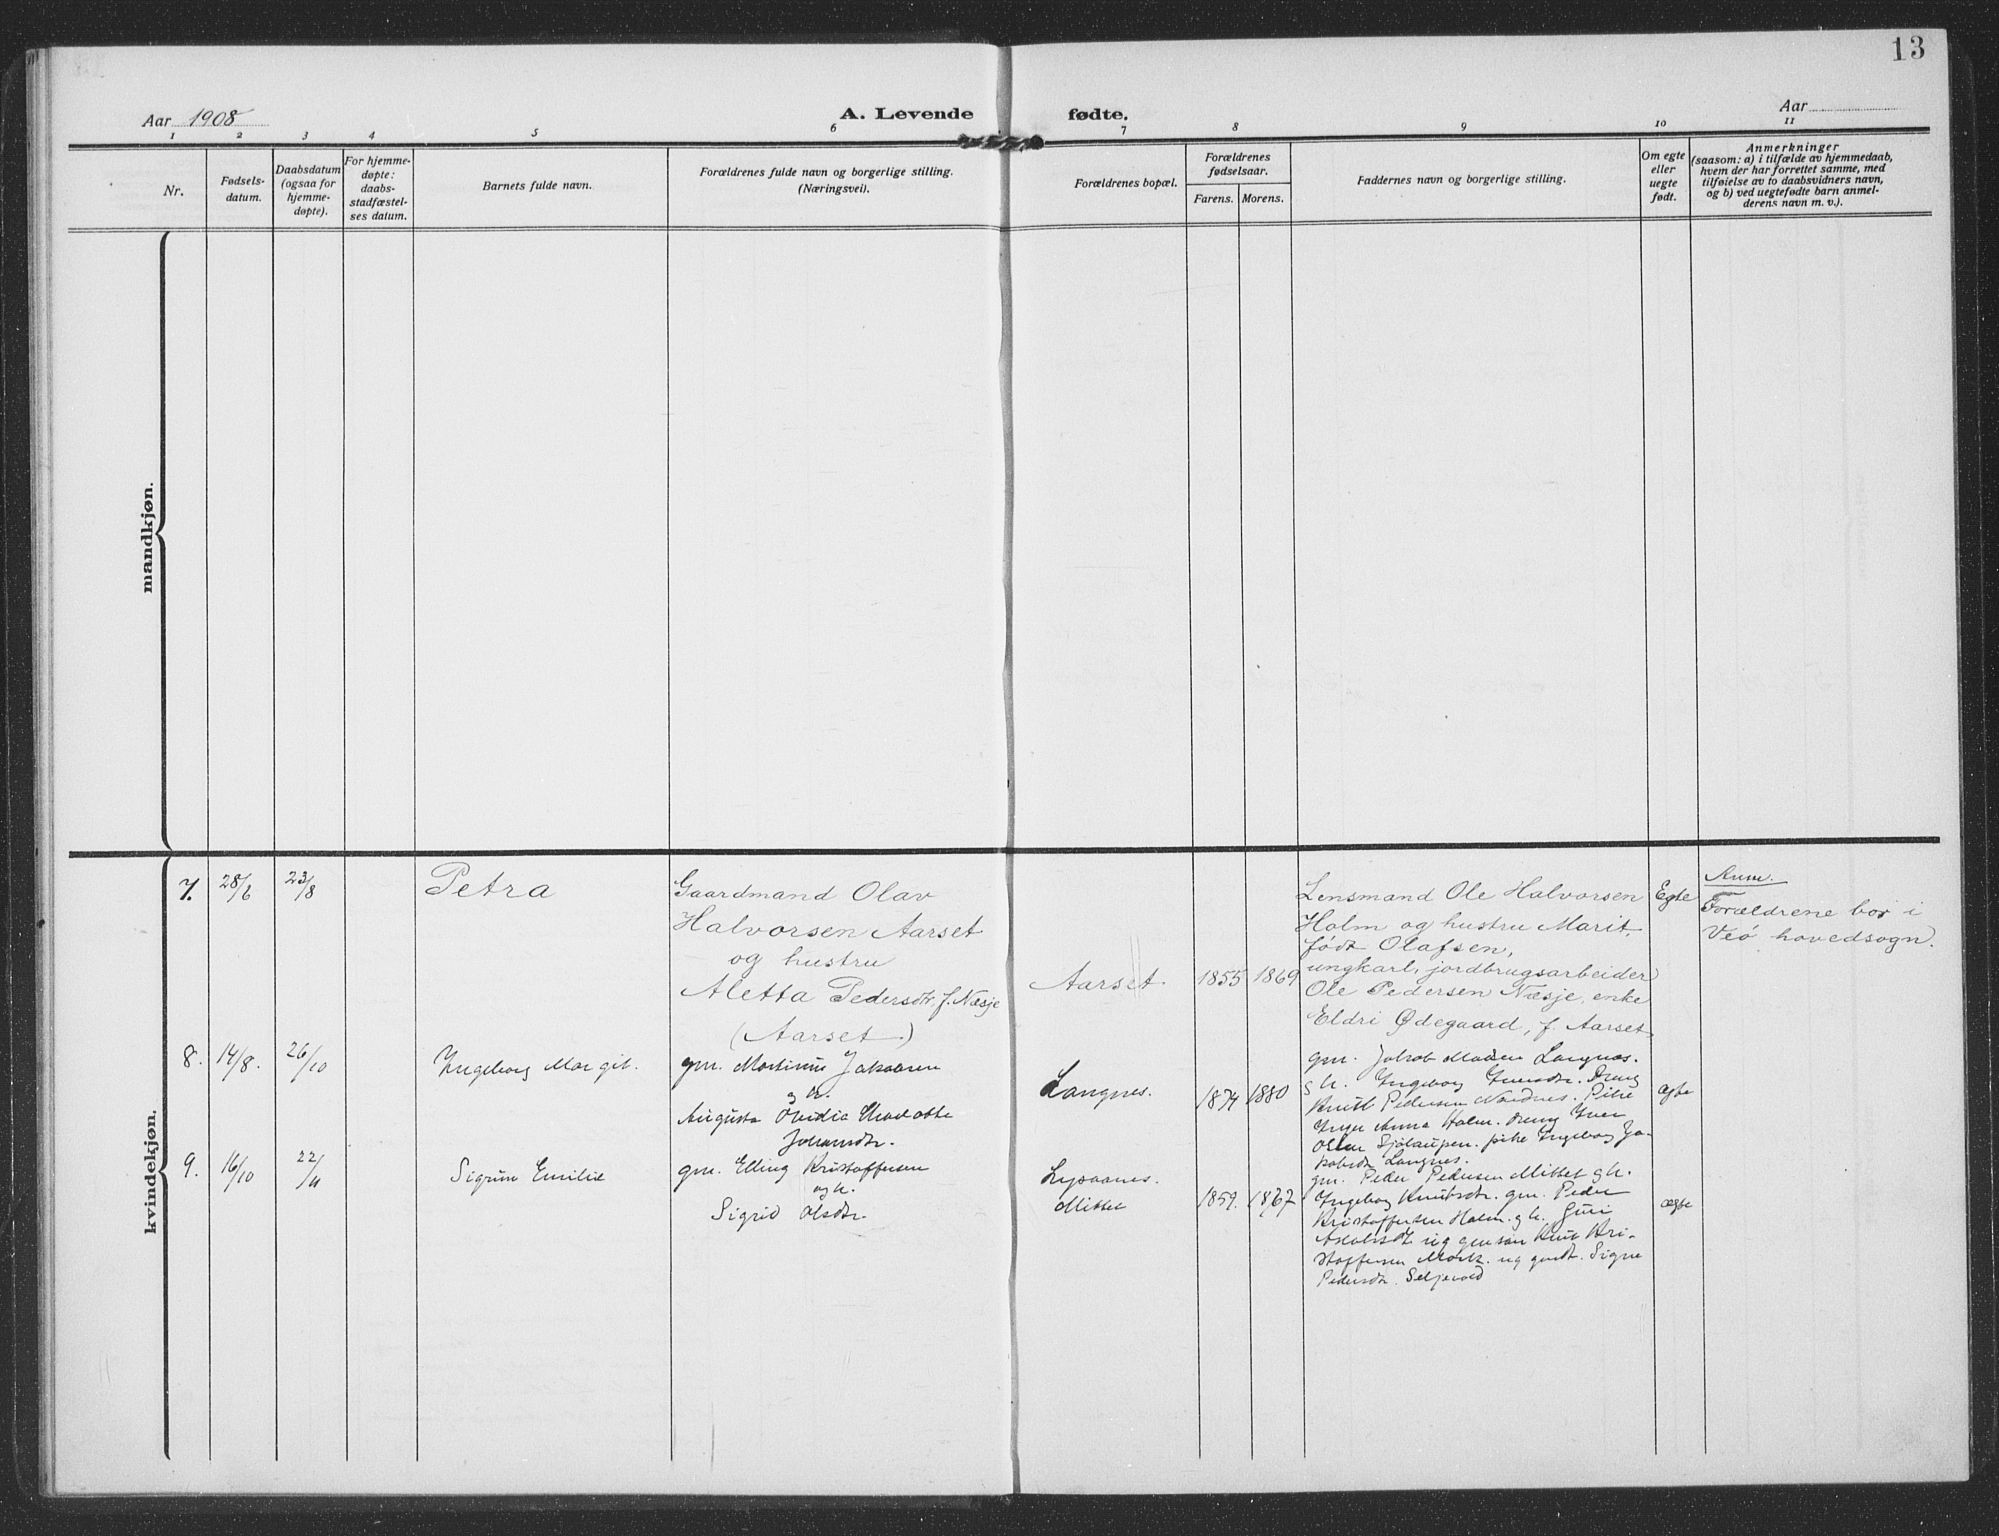 13
Aar 1908
A. Levende fødte.
Aar
1 2 3 4 5 6 7 8 9 10 11
Nr.
Fødsels-
datum.
Daabsdatum
(ogsaa for
hjemme-
døpte).
For hjemme-
døpte:
daabs-
stadfæstel-
ses datum.
Barnets fulde navn.
Forældrenes fulde navn og borgerlige stilling.
(Næringsvei).
Forældrenes bopæl.
Forældrenes
fødselsaar.
Farens. Morens.
Faddernes navn og borgerlige stilling.
Om egte
eller
uegte
født.
Anmerkninger
(saasom: a) i tilfælde av hjemmedaab,
hvem der har forrettet samme, med
tilføielse av to daabsvidners navn,
og b) ved uegtefødte barn anmel-
derens navn m. v.).
mandkjøn.
kvindekjøn.
7. 28/6 23/8
Petra
Gaardmand Olav
Halvorsen Aarset
og hustru
Aletta Pedersdtr. f. Næsje
(Aarset)
Aarset. 1855 1869
Lensmand Ole Halvorsen
Holm og hustru Marit,
født Olafsen,
ungkarl, jordbrugsarbeider
Ole Pedersen Næsje, enke
Eldri Ødegaard, f. Aarset
Egte
Anm.
Forældrene bor i
Veø hovedsogn.
8. 14/8. 26/10
Ingeborg Margit.
gm. Martinus Jakobsen
g h.
Augusta Ovidia Charlotte
Johansdtr.
Langnes. 1874 1880
gm. Jakob Madsen Langnes.
g h. Ingeborg Iversdtr. Dreng
Knut Pedersen Nordnes. Pike
Inger Anna Holm. Dreng Iver
Olsen. pike Ingeborg Ja-
kobsdtr Langnes.
ægte
9. 16/10 22/11
Sigrun Emilie
gm. Elling Kristoffersen
og h.
Sigrid Olsdtr.
Lysaanes.
Mittet 1859. 1867
gm. Peder Pedersen Mittet g h.
Ingeborg Knutsdtr. gm. Peder
Kristoffersen Holm. g h. Guri
ug gmsøn Knut Kri-
stoffersen Mork. ug gmdt. Signe
Pedersdtr. Seljevold
ægte